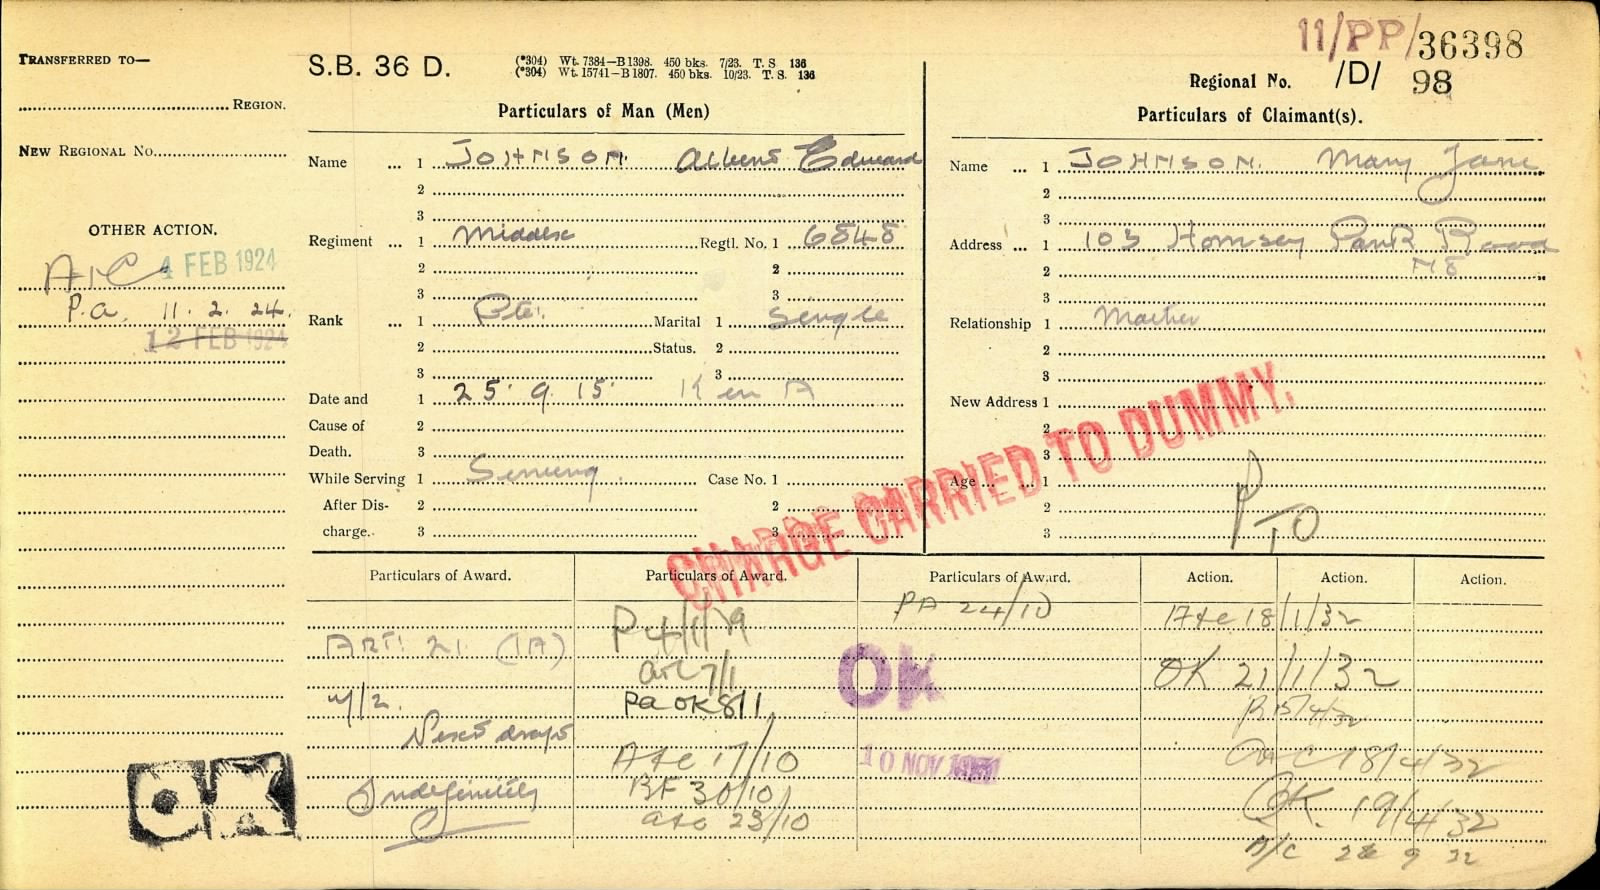 TRANSFERRED TO—
REGION.
NEW REGIONAL No.
OTHER ACTION.
4 FEB 1924
P.a. 11. 2. 24.
12 FEB 1924
S.B. 36 D.
(*304) Wt. 7384—B1398. 450 bks. 7/23. T. S 136
(*304) Wt. 15741—B1807. 450 bks. 10/23. T. S. 136
Particulars of Man (Men)
Name ... 1 JOHNSON. Albert Edward
2
3
Regiment ... 1 Middlsx Regtl. No. 1 6848
2 2
3 3
Rank ... 1 Pte. Marital 1 Single
2 Status. 2
3 3
Date and 1 25. 9. 15. K in A
Cause of 2
Death. 3
While Serving 1 Serving Case No. 1
After Dis- 2 2
charge. 3 3
11/PP/36398
Regional No. /D/ 98
Particulars of Claimant(s).
Name ... 1 JOHNSON. Mary Jane
2
3
Address ... 1 103 Hornsey Park Road
2 N8
3
Relationship 1 Mother
2
3
New Address 1
2
3
Age ... ... 1
2
3
PTO
CHARGE CARRIED TO DUMMY.
Particulars of Award.
ART: 21. (1A)
Indefinitely
OK
Particulars of Award.
P 4/1/29
7/1
Pa OK 8/1
A+c 17/10
BF 30/10
a+c 23/10
Particulars of Award.
PA 24/10
OK
10 NOV
Action. Action. Action.
A+c 18/1/32
OK 21/1/32
18/4/32
OK. 19/4/32